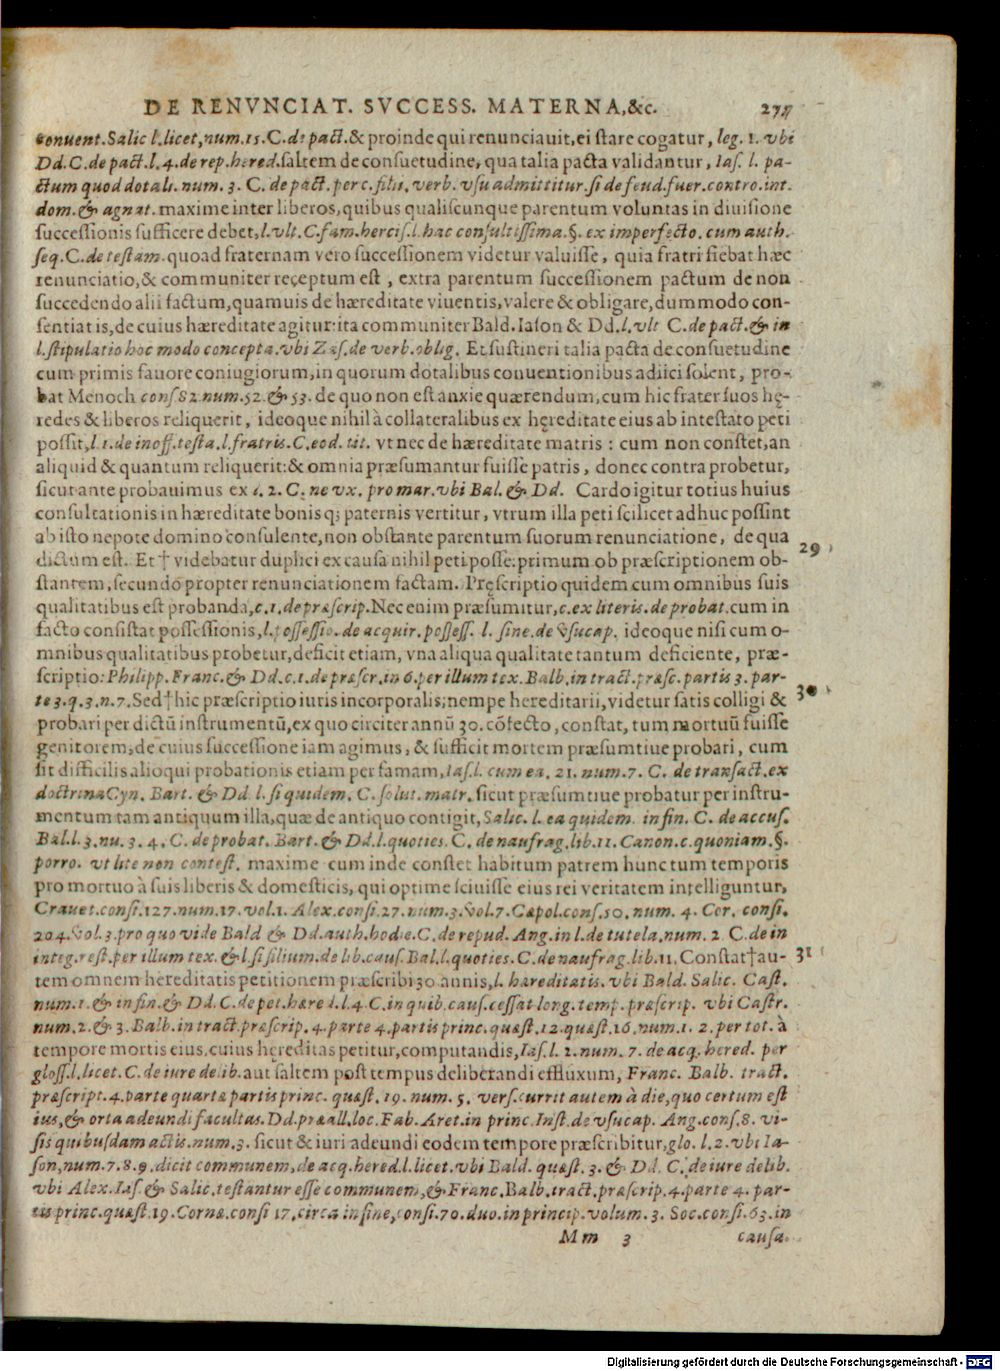 DE RENVNCIAT. SVCCESS. MATERNA,&c. 277
conuent. Salic l. licet, num. 15. C. de pact. & proinde qui renunciauit, ei stare cogatur, leg. 1. vbi
Dd. C. de pact. l. 4. de rep. hered. saltem de consuetudine, qua talia pacta validantur, Ias. l. pa-
ctum quod dotali. num. 3. C. de pact. per c. filii, verb. vsu admittitur. si de feud. fuer. contro. int.
dom. & agnat. maxime inter liberos, quibus qualiscunque parentum voluntas in diuisione
successionis sufficere debet, l. vlt. C. fam. hercis. l. hac consultissima. §. ex imperfecto. cum auth.
seq. C. de testam. quoad fraternam vero successionem videtur valuisse, quia fratri fiebat hæc
renunciatio, & communiter receptum est, extra parentum successionem pactum de non
succedendo alii factum, quamuis de hæreditate viuentis, valere & obligare, dummodo con-
sentiat is, de cuius hæreditate agitur: ita communiter Bald. Iason & Dd. l. vlt C. de pact. & in
l. stipulatio hoc modo concepta. vbi Zas. de verb. oblig. Et sustineri talia pacta de consuetudine
cum primis fauore coniugiorum, in quorum dotalibus conuentionibus adiici solent, pro-
bat Menoch cons 82. num. 52. & 53. de quo non est anxie quærendum, cum hic frater suos hę-
redes & liberos reliquerit, ideoque nihil à collateralibus ex hęreditate eius ab intestato peti
possit, l. 1. de inoff. testa. l. fratris. C. eod. tit. vt nec de hæreditate matris: cum non constet, an
aliquid & quantum reliquerit: & omnia præsumantur fuisse patris, donec contra probetur,
sicut ante probauimus ex l. 2. C. ne vx. pro mar. vbi Bal. & Dd. Cardo igitur totius huius
consultationis in hæreditate bonisq; paternis vertitur, vtrum illa peti scilicet adhuc possint
ab isto nepote domino consulente, non obstante parentum suorum renunciatione, de qua
dictum est. Et † videbatur duplici ex causa nihil peti posse: primum ob præscriptionem ob- 29
stantem, secundo propter renunciationem factam. Pręscriptio quidem cum omnibus suis
qualitatibus est probanda, c. 1. de præscrip. Nec enim præsumitur, c. ex literis. de probat. cum in
facto consistat possessionis, l. possessio. de acquir. possess. l. sine. de vsucap. ideoque nisi cum o-
mnibus qualitatibus probetur, deficit etiam, vna aliqua qualitate tantum deficiente, præ-
scriptio: Philipp. Franc. & Dd. c. 1. de præscr. in 6. per illum tex. Balb. in tract. præsc. partis 3. par-
te 3. q. 3. n. 7. Sed † hic præscriptio iuris incorporalis, nempe hereditarii, videtur satis colligi & 30
probari per dictū instrumentū, ex quo circiter annū 30. cōfecto, constat, tum mortuū fuisse
genitorem, de cuius successione iam agimus, & sufficit mortem præsumtiue probari, cum
sit difficilis alioqui probationis etiam per famam, Ias. l. cum ea. 21. num. 7. C. de transact. ex
doctrina Cyn. Bart. & Dd l. si quidem. C. solut. matr. sicut præsumtiue probatur per instru-
mentum tam antiquum illa, quæ de antiquo contigit, Salic. l. ea quidem. in fin. C. de accus.
Bal. l. 3. nu. 3. 4. C. de probat. Bart. & Dd. l. quoties. C. de naufrag. lib. 11. Canon. c. quoniam. §.
porro. vt lite non contest. maxime cum inde constet habitum patrem hunc tum temporis
pro mortuo à suis liberis & domesticis, qui optime sciuisse eius rei veritatem intelliguntur,
Crauet. consi. 127. num. 17. vol. 1. Alex. consi. 27. num. 3. vol. 7. Capol. cons. 50. num. 4. Cor. consi.
204. vol. 3. pro quo vide Bald & Dd. auth. hodie. C. de repud. Ang. in l. de tutela. num. 2 C. de in
integ. rest. per illum tex. & l. si filium. de lib. caus. Bal. l. quoties. C. de naufrag. lib. 11. Constat † au- 31
tem omnem hereditatis petitionem præscribi 30 annis, l. hereditatis. vbi Bald. Salic. Cast.
num. 1. & in fin. & Dd. C. de pet. hæred. l. 4. C. in quib. caus. cessat long. temp. præscrip. vbi Castr.
num. 2. & 3. Balb. in tract. præscrip. 4. parte 4. partis princ. quæst. 12. quæst. 16. num. 1. 2. per tot. à
tempore mortis eius, cuius hęreditas petitur, computandis, Ias. l. 2. num. 7. de acq. hered. per
gloss. l. licet. C. de iure delib. aut saltem post tempus deliberandi effluxum, Franc. Balb. tract.
præscript. 4. parte quarta partis princ. quæst. 19. num. 5. vers. currit autem à die, quo certum est
ius, & orta adeundi facultas. Dd. præall. loc. Fab. Aret. in princ. Inst. de vsucap. Ang. cons. 8. vi-
sis quibusdam actis. num. 3. sicut & iuri adeundi eodem tempore præscribitur, glo. l. 2. vbi Ia-
son, num. 7. 8. 9. dicit communem, de acq. hered. l. licet. vbi Bald. quæst. 3. & Dd. C. de iure delib.
vbi Alex. Ias. & Salic. testantur esse communem, & Franc. Balb. tract. præscrip. 4. parte 4. par-
tis princ. quæst. 19. Cornæ. consi 17. circa in fine, consi. 70. duo. in princip. volum. 3. Soc. consi. 63. in
Mm 3 causa.
Digitalisierung gefördert durch die Deutsche Forschungsgemeinschaft - DFG